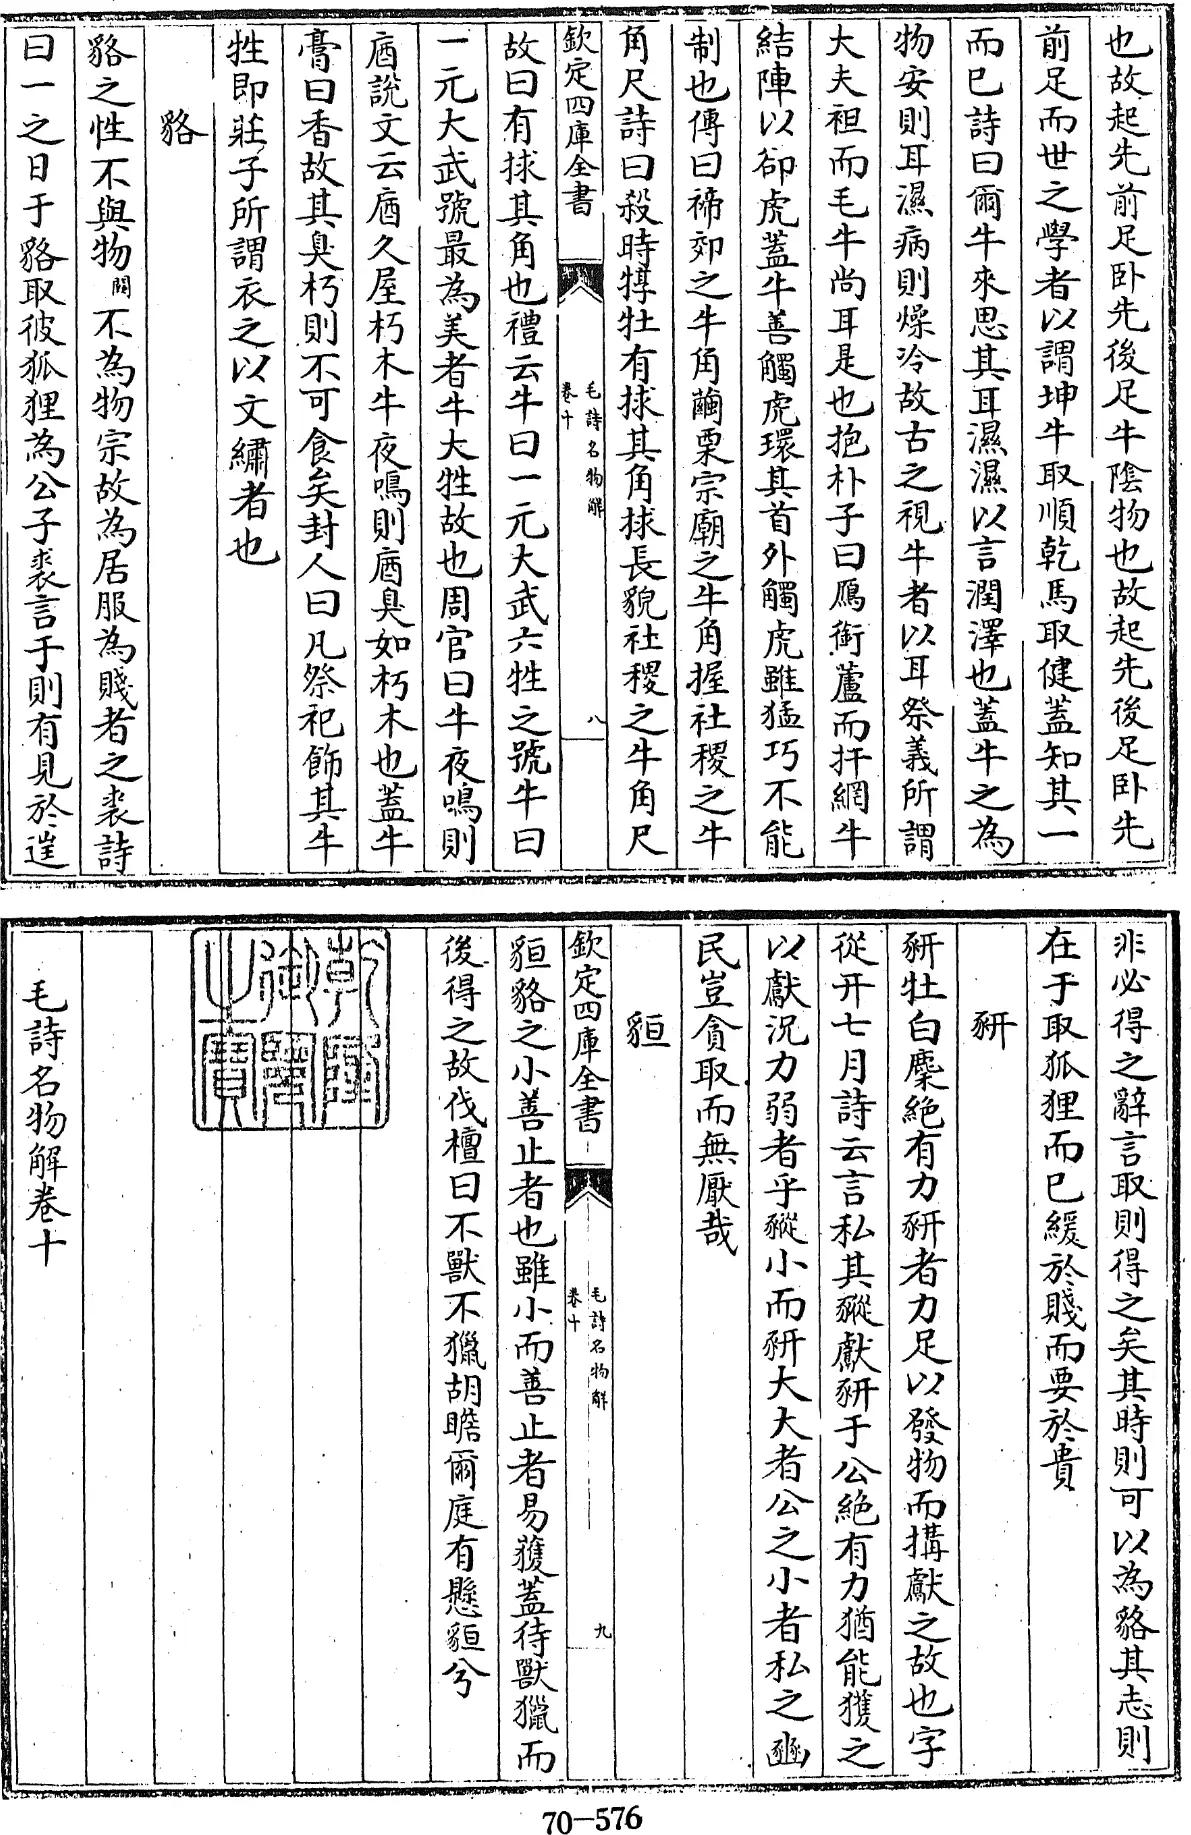 也故起先前足卧先後足牛隂物也故起先後足卧先
前足而世之學者以謂坤牛取順乾馬取健蓋知其一
而已詩曰爾牛來思其耳濕濕以言潤澤也蓋牛之為
物安則耳濕病則燥冷故古之視牛者以耳祭義所謂
大夫袒而毛牛尚耳是也抱朴子曰鴈銜蘆而扞網牛
結陣以卻虎蓋牛善觸虎環其首外觸虎雖猛巧不能
制也傳曰禘郊之牛角繭栗宗廟之牛角握社稷之牛
角尺詩曰殺時犉牡有捄其角捄長貌社稷之牛角尺
欽定四庫全書
毛詩名物解
卷十
八
故曰有捄其角也禮云牛曰一元大武六牲之號牛曰
一元大武號最為美者牛大牲故也周官曰牛夜鳴則
庮說文云庮久屋朽木牛夜鳴則庮臭如朽木也蓋牛
膏曰香故其臭朽則不可食矣封人曰凡祭祀飾其牛
牲即莊子所謂衣之以文繡者也
貉
貉之性不與物闕不為物宗故為居服為賤者之裘詩
曰一之日于貉取彼狐狸為公子裘言于則有見於遑
非必得之辭言取則得之矣其時則可以為貉其志則
在于取狐狸而已緩於賤而要於貴
豣
豣牡白麇絶有力豣者力足以發物而搆獻之故也字
從幵七月詩云言私其豵獻豣于公絶有力猶能獲之
以獻況力弱者乎豵小而豣大大者公之小者私之豳
民豈貪取而無厭哉
貆
欽定四庫全書
毛詩名物解
卷十
九
貆貉之小善止者也雖小而善止者易獲蓋待獸獵而
後得之故伐檀曰不獸不獵胡瞻爾庭有懸貆兮
乾隆御覽之寶
毛詩名物解卷十
70-576